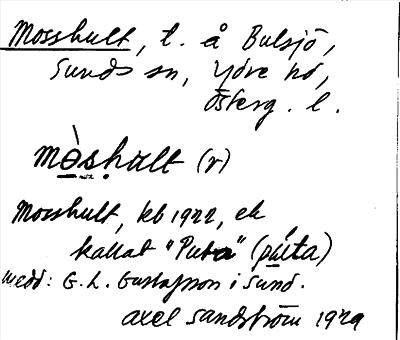 Mosshult, t. å Bulsjö,
Sunds sn, Ydre hd,
Österg. l.
mòsḥult (r)
Mosshult, kb 1922, ek
kallat "Puta" (púta)
medd: G. L. Gustafsson i Sund.
Axel Sandström 1929